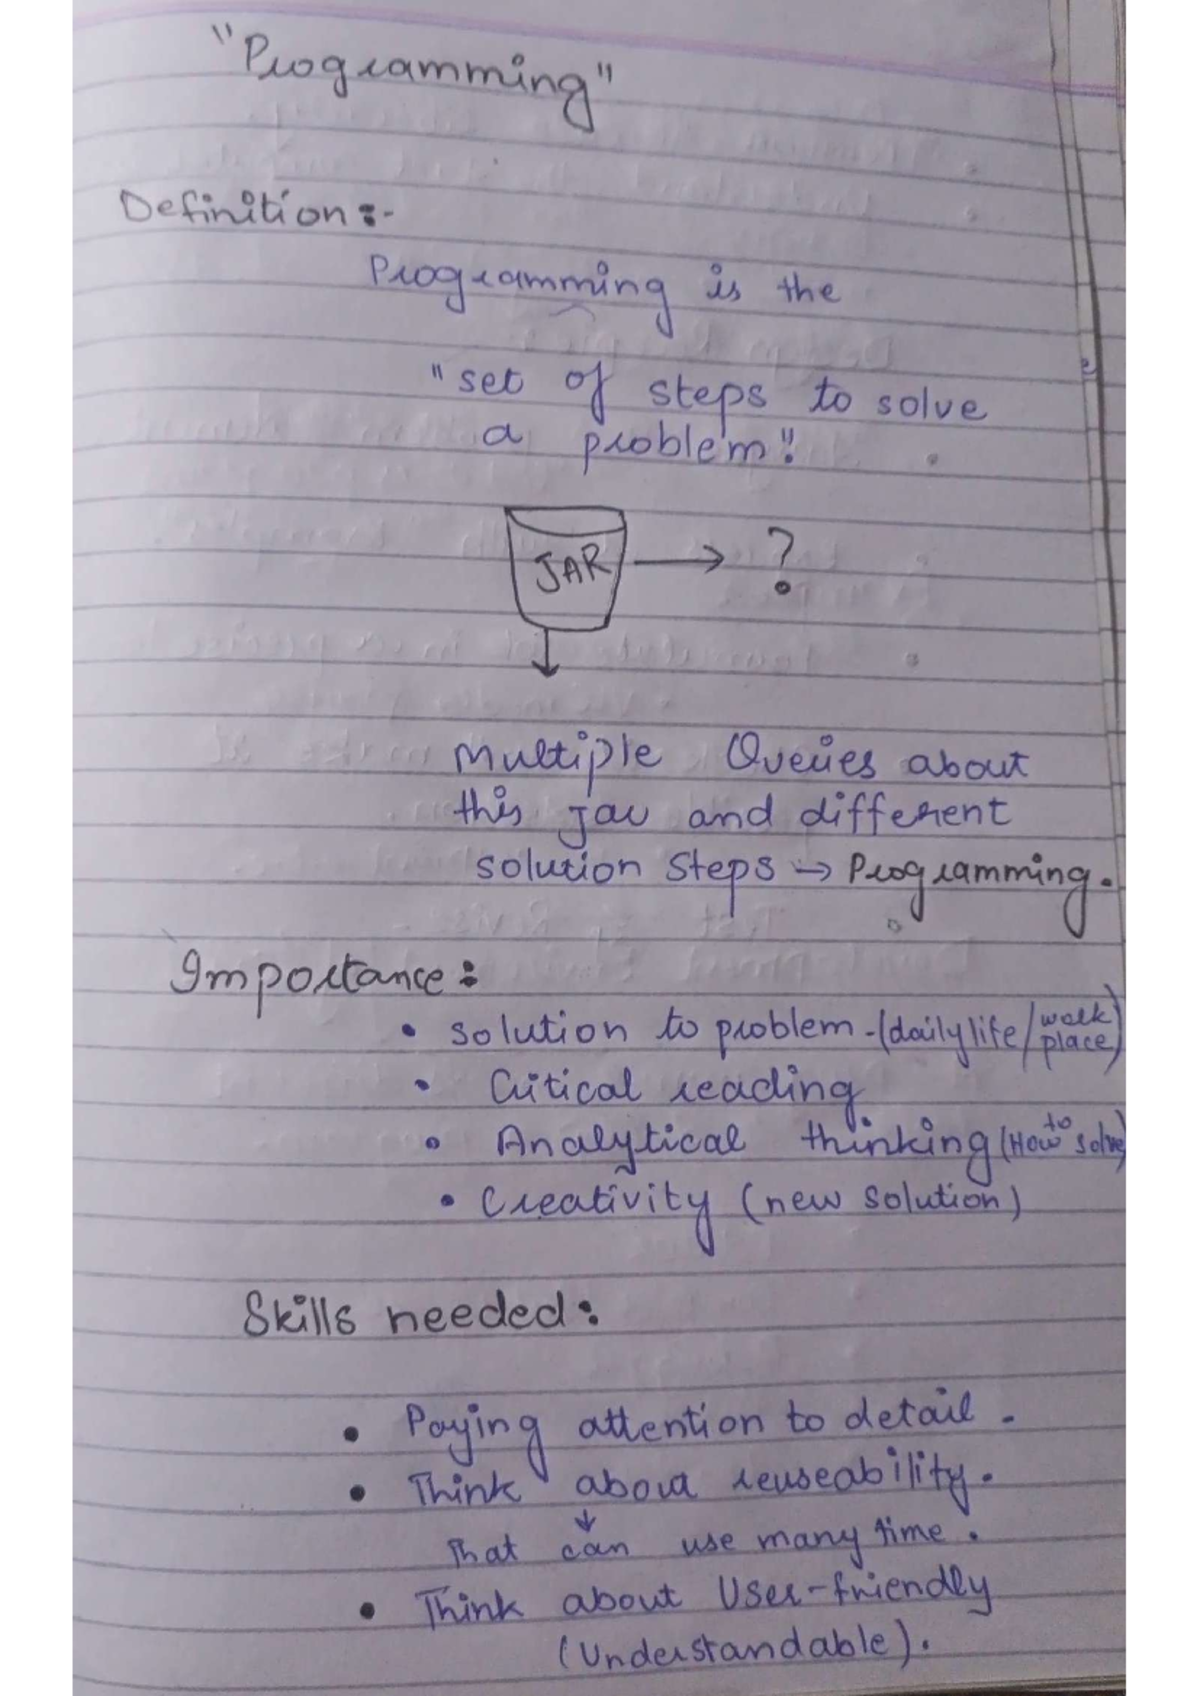 "Programming"
Definition:-
Programming is the
"set of steps to solve
a problem".
JAR → ?
Multiple Queries about
this jar and different
solution steps → Programming.
Importance:
• solution to problem-(daily life/work place)
• Critical reading
• Analytical thinking (How to solve)
• Creativity (new solution)
Skills needed:
• Paying attention to detail.
• Think about reuseability.
That can use many time.
• Think about User-friendly
(Understandable).